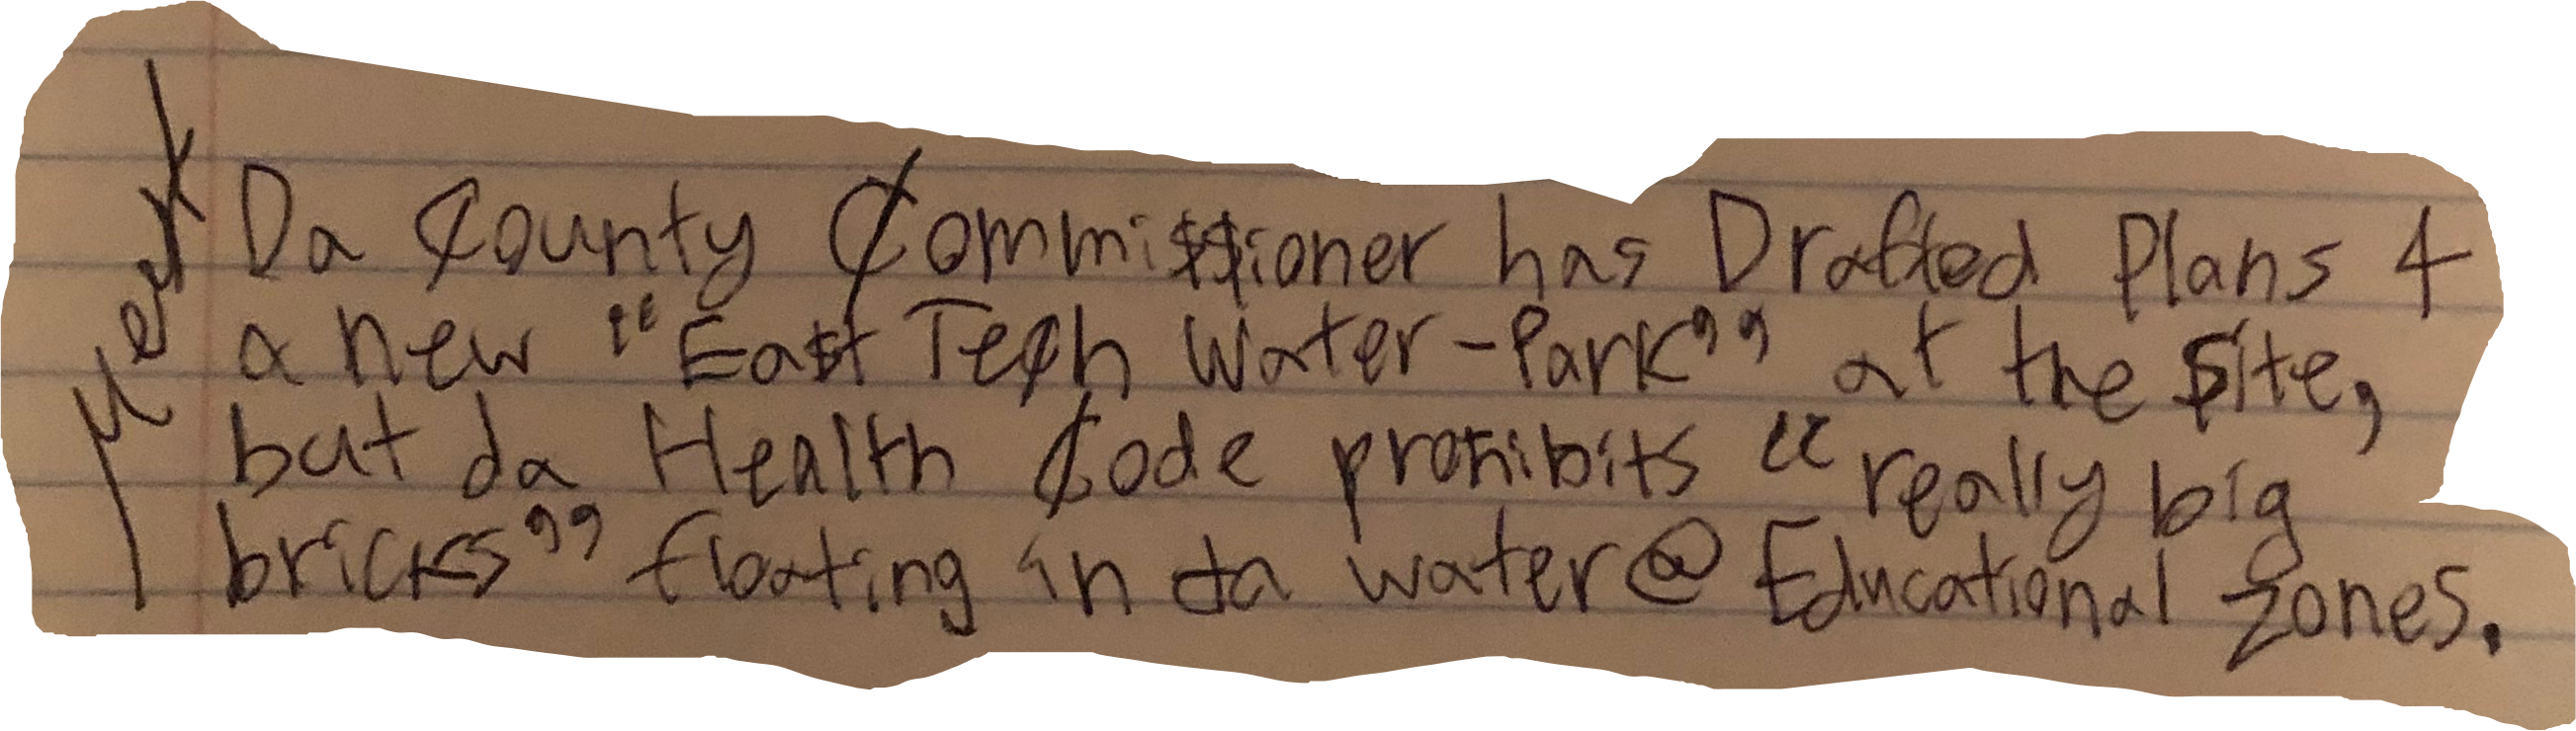 Merk
Da ¢ounty ¢ommi$$ioner has Drafted Plans 4
a new "Ea$t Te¢h Water-Park" at the $ite,
but da Health ¢ode prohibits "really big
bricks" floating in da water @ Educational zones.